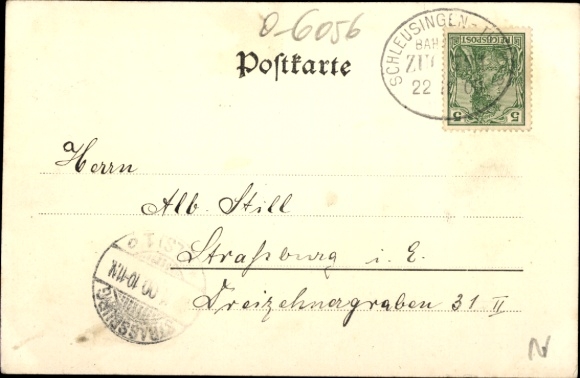 0-6056
Postkarte
SCHLEUSINGEN-
BAH
ZU
22
REICHSPOST
5 5
Herrn
Alb. Still
Straßburg i. E.
Dreizehnergraben 31 II
STRASSBURG
00.10-11.V.
N